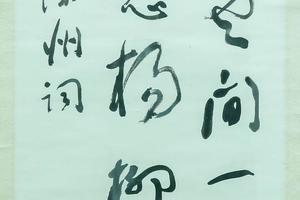 云间一
怨杨柳
凉州词